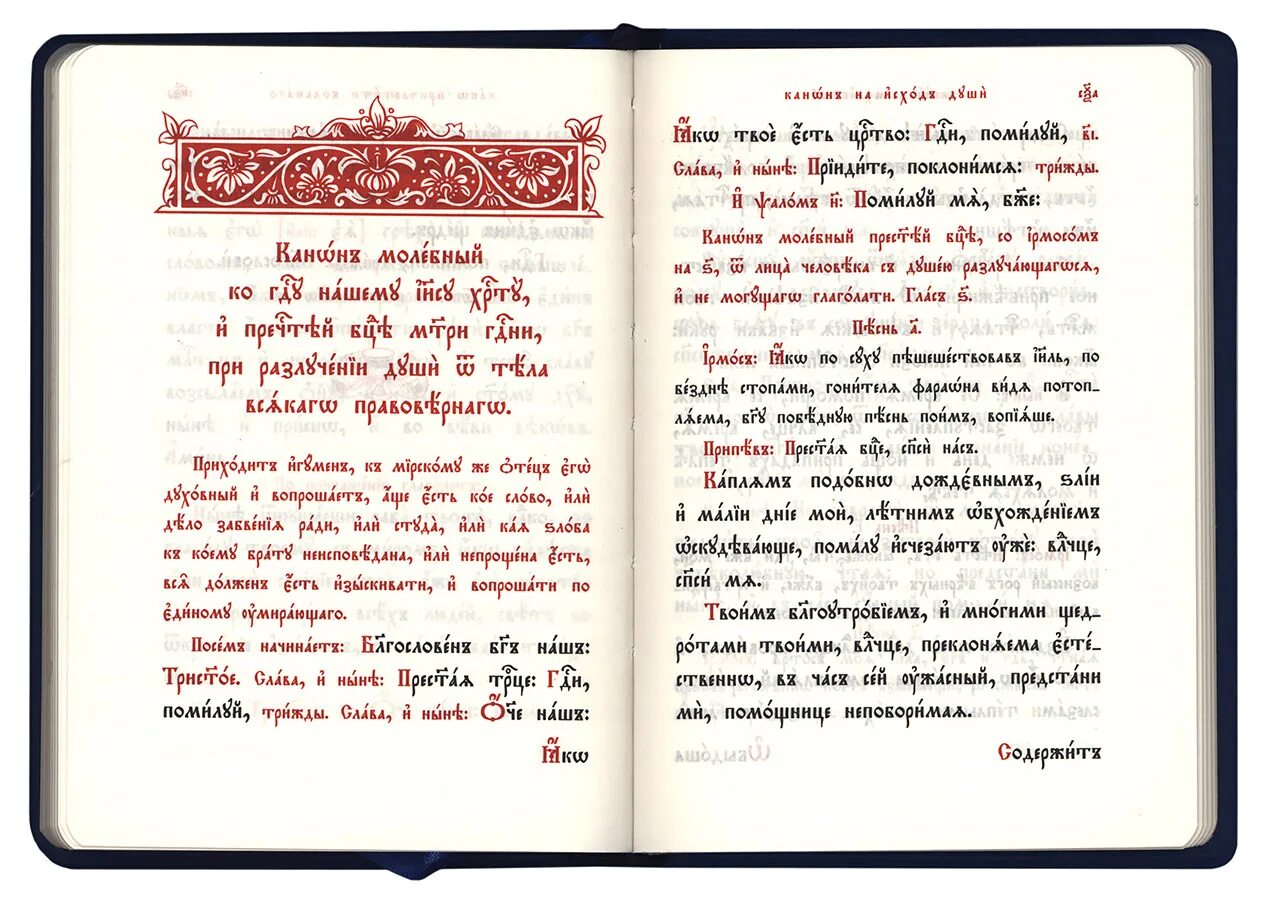 Канѡ́нъ моле́бный
ко гдⷭ҇ꙋ на́шемꙋ і҆и҃сꙋ хрⷭ҇тꙋ̀,
и҆ пречⷭ҇тѣй бцⷣѣ мт҃ри гдⷭ҇ни,
при разлꙋче́нїи дꙋшѝ ѿ тѣ́ла
всѧ́кагѡ правовѣ́рнагѡ.
Прихо́дитъ и҆гꙋ́менъ, къ мїрско́мꙋ же ѻ҆те́цъ є҆гѡ̀
дꙋхо́вный и҆ вопроша́етъ, а҆́ще є҆́сть ко́е сло́во, и҆лѝ
дѣ́ло забве́нїѧ ра́ди, и҆лѝ стꙋда̀, и҆лѝ ка́ѧ ѕло́ба
къ ко́емꙋ бра́тꙋ неисповѣ́дана, и҆лѝ непроще́на є҆́сть,
всѧ̑ до́лженъ є҆́сть и҆зы́скивати, и҆ вопроша́ти по
є҆ди́номꙋ ᲂу҆мира́ющаго.
Посе́мъ начина́етъ: Блгⷭ҇ослове́нъ бг҃ъ на́шъ:
Трист҃о́е. Сла́ва, и҆ ны́нѣ: Прест҃а́ѧ трⷪ҇це: Гдⷭ҇и,
поми́лꙋй, три́жды. Сла́ва, и҆ ны́нѣ: Ѻ҆́ч҃е на́шъ:
Ꙗ҆́кѡ
канѡ́нъ на и҆схо́дъ дꙋшѝ
Ꙗ҆́кѡ твоѐ є҆́сть црⷭ҇тво: Гдⷭ҇и, поми́лꙋй, в҃і.
Сла́ва, и҆ ны́нѣ: Прїиди́те, поклони́мсѧ: три́жды.
И҆ ѱало́мъ н҃: Поми́лꙋй мѧ̀, бж҃е:
Канѡ́нъ моле́бный прест҃ѣ́й бцⷣѣ, со і҆рмосо́мъ
на ѕ҃, ѿ лица̀ человѣ́ка съ дꙋше́ю разлꙋча́ющагѡсѧ,
и҆ не могꙋ́щагѡ глаго́лати. Гла́съ ѕ҃.
Пѣ́снь а҃.
І҆рмо́съ: Ꙗ҆́кѡ по сꙋ́хꙋ пѣшеше́ствовавъ і҆и҃ль, по
бе́зднѣ стопа́ми, гони́телѧ фараѡ́на ви́дѧ потоп-
лѧ́ема, бг҃ꙋ побѣ́днꙋю пѣ́снь пои́мъ, вопїѧ́ше.
Припѣ́въ: Прест҃а́ѧ бцⷣе, сп҃сѝ на́съ.
Ка́плѧмъ подо́бнѡ дожде́внымъ, ѕлі́и
и҆ ма́лїи дні́е моѝ, лѣ́тнимъ ѡ҆бхожде́нїемъ
ѡ҆скꙋдѣва́юще, пома́лꙋ и҆счеза́ютъ ᲂу҆жѐ: влⷣчце,
сп҃сѝ мѧ̀.
Твои́мъ блгⷭ҇оꙋтро́бїемъ, и҆ мно́гими щед-
ро́тами твои́ми, влⷣчце, преклонѧ́ема є҆сте́-
ственнѡ, въ ча́съ се́й ᲂу҆жа́сный, предста́ни
мѝ, помо́щнице непобори́маѧ.
Содержи́тъ